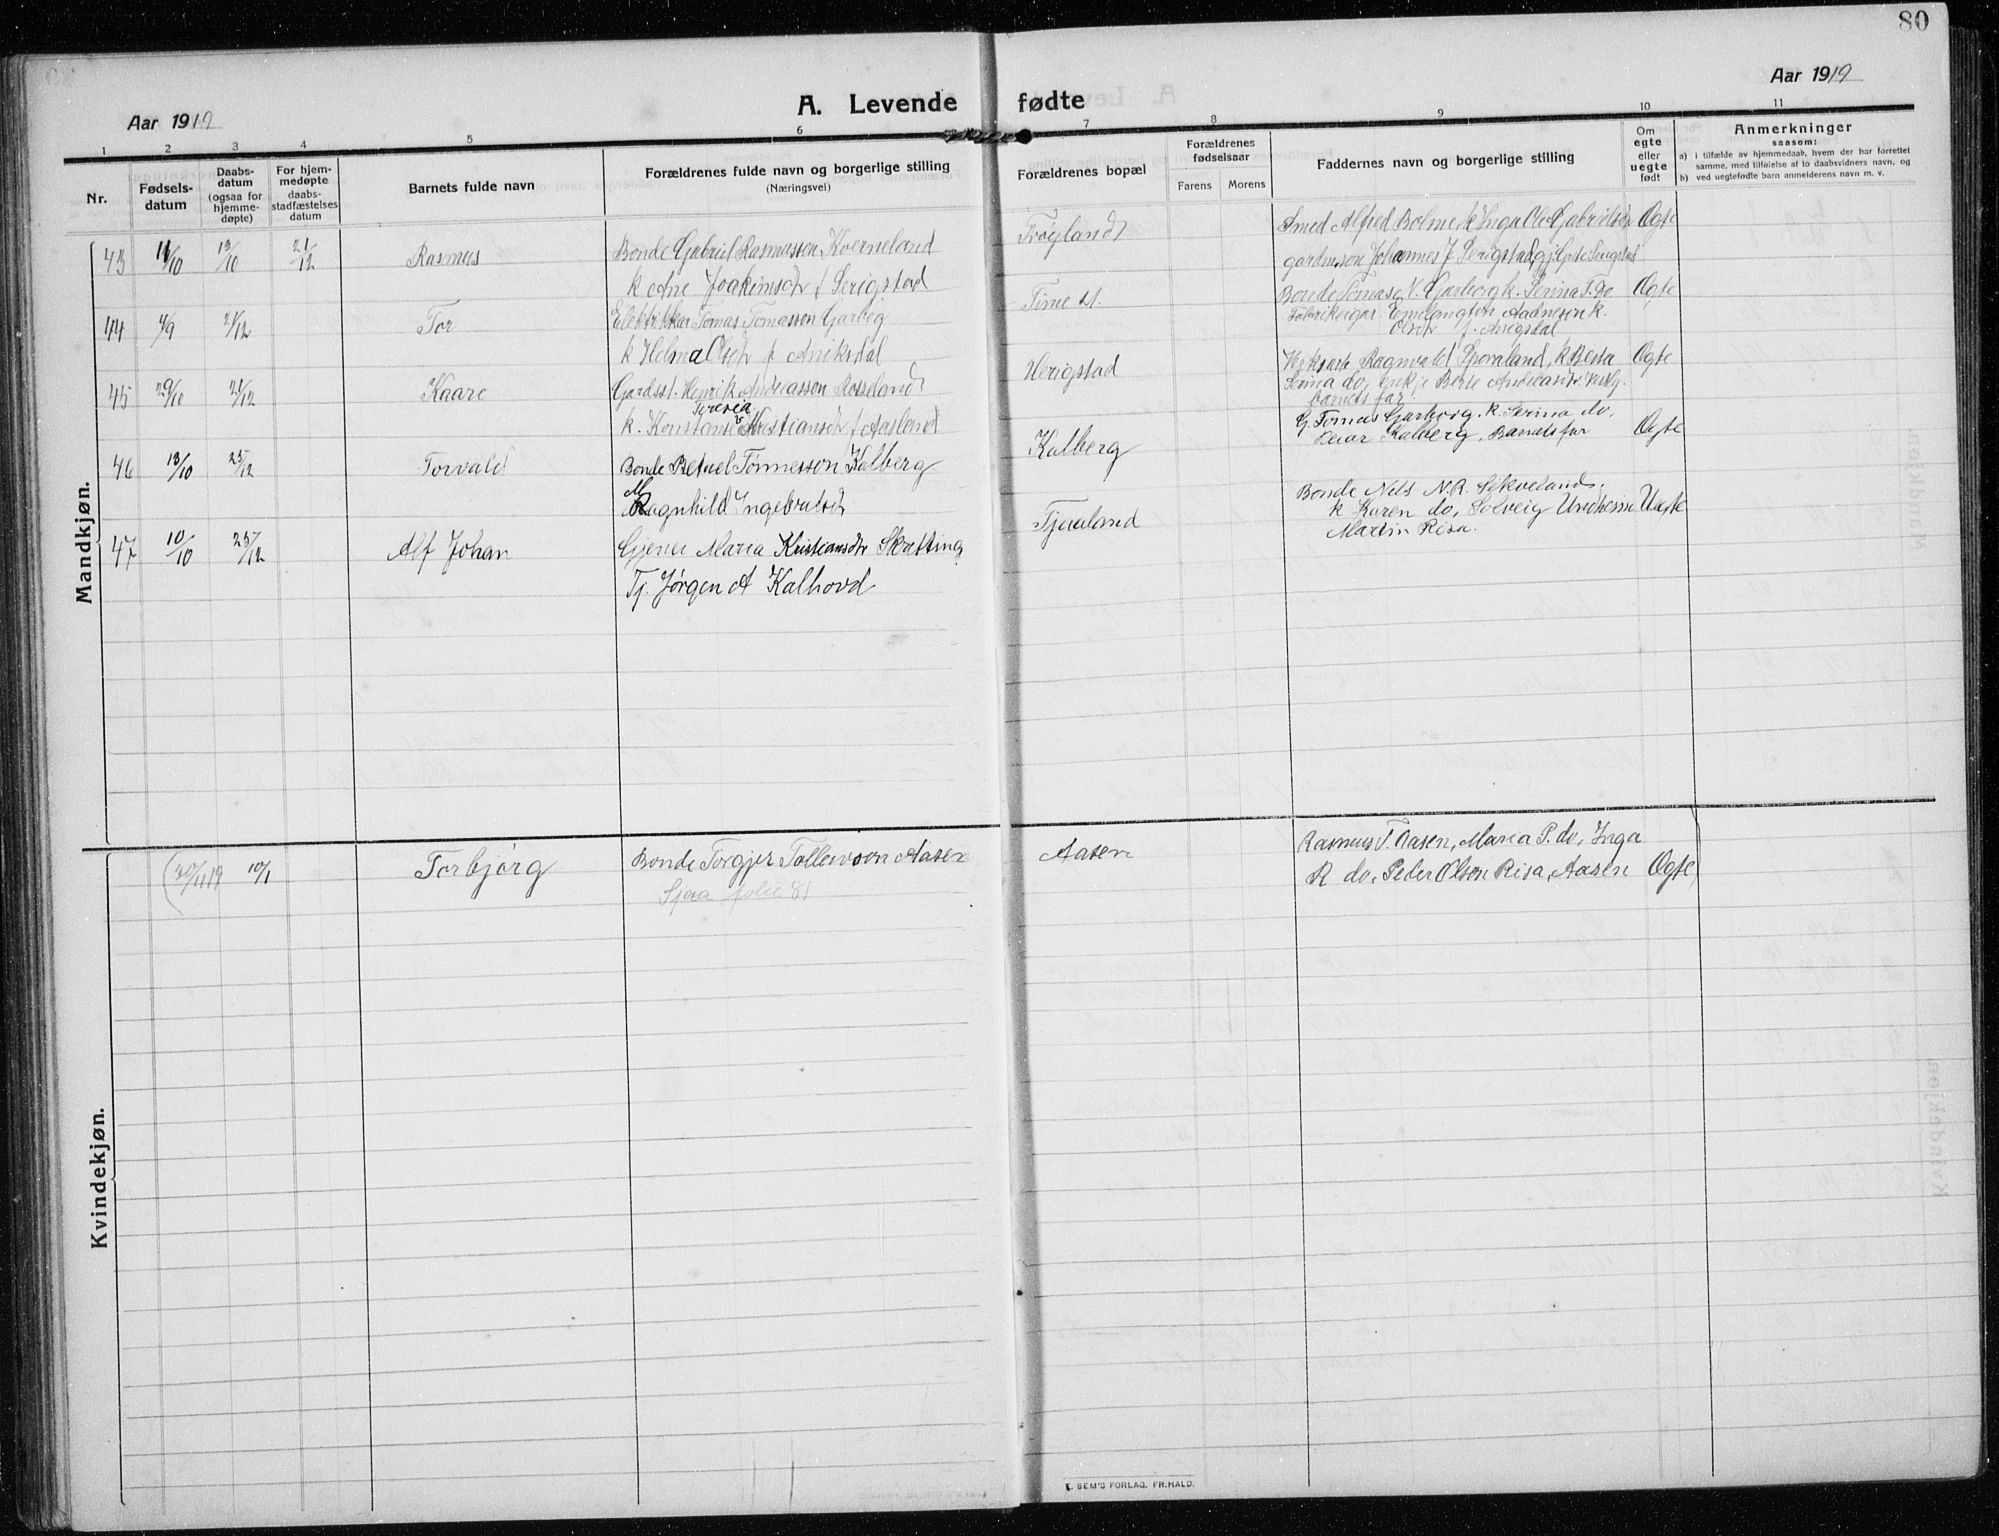 80
Aar 1919
A. Levende fødte
Aar 1919
1 2 3 4 5 6 7 8 9 10 11
Nr.
Fødsels-
datum
Daabs-
datum
(ogsaa for
hjemme-
døpte)
For hjem-
medøpte
daabs-
stadfæstelses
datum
Barnets fulde navn
Forældrenes fulde navn og borgerlige stilling
(Næringsvei)
Forældrenes bopæl
Forældrenes
fødselsaar
Farens Morens
Faddernes navn og borgerlige stilling
Om
egte
eller
uegte
født
Anmerkninger
saasom:
a) i tilfælde av hjemmedaab, hvem der har forrettet
samme, med tilføielse af to daabsvidners navn, og
b) ved uegtefødte barn anmelderens navn m. v.
Mandkjøn.
43 11/10 13/10 21/12 Rasmus Bonde Gabriel Rasmussen Kverneland
k Ane Joakimsdr f Serigstad
Frøyland
Smed Alfred Bolme k Inga Ole Gabrielsen
gardmson Johannes J Serigstad gj Serigstad
Ogte
44 4/9 21/12 Tor Elektriker Tomas Tomasson Garborg
k Helma Olsdr f Aniksdal
Time
Bonde Tomas Garborg k. Serina T. Do
Aadneson k.
Ogte
45 29/10 21/12 Kaare Henrik Andreasson Rosseland
Teresia
k. Kristiansdr f Aasland
Herigstad
Ragnvald k Berta
Serina do, Berte
barnets far
Ogte
46 13/10 25/12 Torvald Bonde Betuel Tønnesson Kalberg
M
Ragnhild Ingebretsdr
Kalberg
G. Tomas Garborg. k. Serina do.
Kalberg, Barnets far
Ogte
47 10/10 25/12 Alf Johan Gjente Maria Kristiansdr Skretting
Tj. Jørgen A Kalhovd
Tjaaland
Bonde Nils N.R. Sikveland,
k Karen do, Solveig Undheim
Martin Risa.
Uegte
Kvindekjøn.
(30/11 19 10/1 Torbjørg Bonde Torgjer Tollevson Aasen
Sjaa folie 81
Aasen
Rasmus T. Aasen, Maria P. do, Inga
R do, Peder Olson Risa, Aasen Ogte)
E. SEM'S FORLAG, FR.HALD.